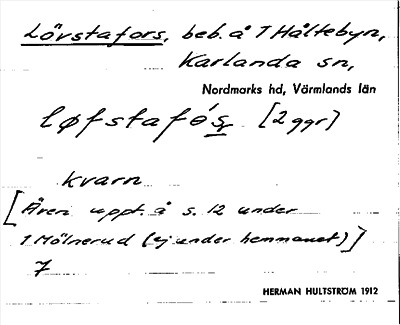 Lövstafors, beb. å 1 Håltebyn,
Karlanda sn,
Nordmarks hd, Värmlands län
løfstafó̵s̲r̲ [2 ggr]
kvarn
[Även uppt. å s. 12 under
1 Mölnerud (ej under hemmanet)]
7
HERMAN HULTSTRÖM 1912